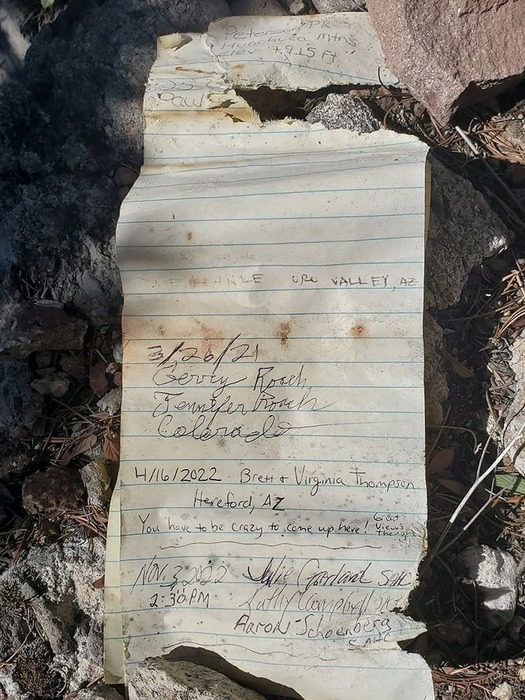 Peterson PK
Huachuca Mtns
elev 7915 Ft
VALLEY, AZ
3/26/21
Gerry Roach
Jennifer Roach
Colorado
4/16/2022 Brett & Virginia Thompson
Hereford, AZ
You have to be crazy to come up here! Great Views Though
Nov. 3 2022 Julie Garrard
2:30PM Kathy Campbell
Aaron Schoenberg